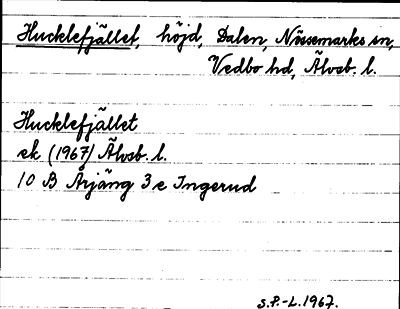 Hucklefjället, höjd, Dalen, Nössemarks sn,
Vedbo hd, Älvsb. l.
Hucklefjället
ek (1967) Älvsb. l.
10 B Årjäng 3 e Ingerud
S.P.-L. 1967.